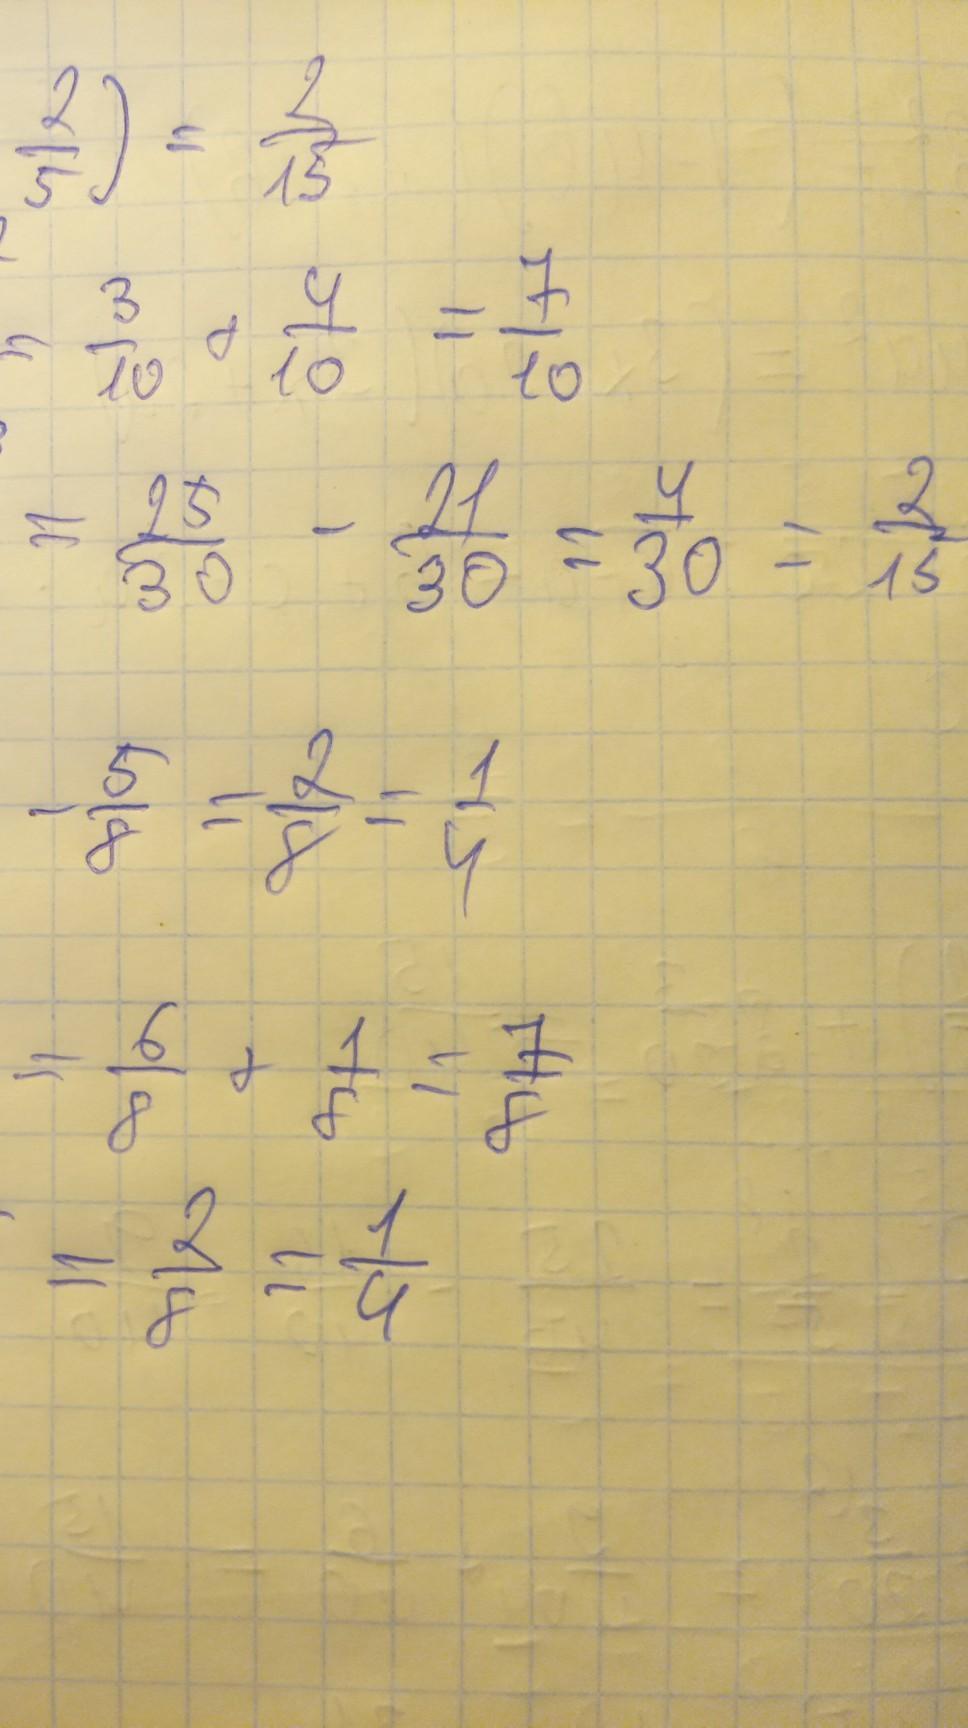 2/5) = 2/15
= 3/10 + 4/10 = 7/10
= 25/30 - 21/30 = 4/30 = 2/15
- 5/8 = 2/8 = 1/4
= 6/8 + 1/8 = 7/8
= 2/8 = 1/4